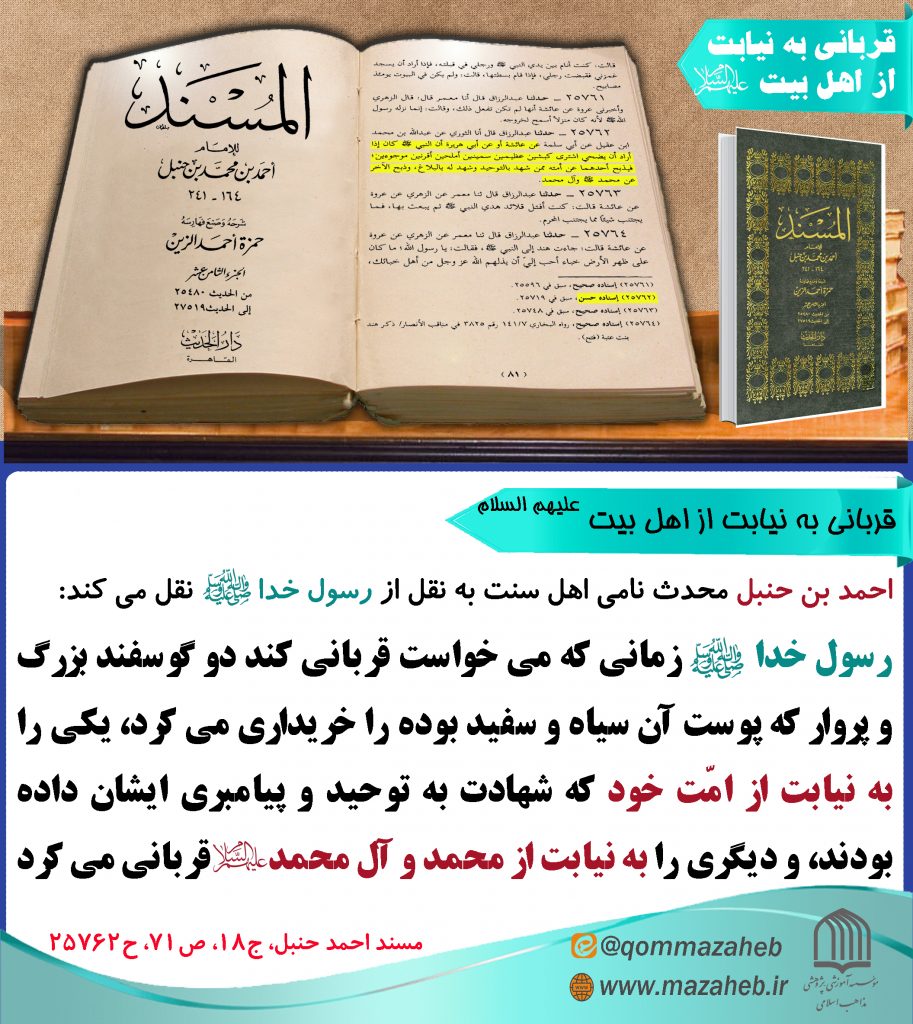 قربانی به نیابت
از اهل بیت علیهم السلام
المسند
للإمام
أحمد بن محمد بن حنبل
١٦٤ - ٢٤١
شرحه وصنع فهارسه
حمزة أحمد الزين
الجزء الثامن عشر
من الحديث ٢٥٤٨٠
إلى الحديث ٢٧٥١٩
دار الحديث
القاهرة
قالت، كنت أنام بين يدي النبي ﷺ ورجلي في قبلته، فإذا أراد أن يسجد
غمزني فقبضت رجلي، فإذا قام بسطتها، قالت: ولم يكن في البيوت يومئذ
مصابيح.
٢٥٧٦١ ــ حدثنا عبدالرزاق قال أنا معمر قال: قال الزهري
وأخبرني عروة عن عائشة أنها لم تكن تفعل ذلك، وقالت: إنما نزله رسول
الله ﷺ لأنه كان منزلاً أسمح لخروجه.
٢٥٧٦٢ ــ حدثنا عبدالرزاق قال أنا الثوري عن عبدالله بن محمد
ابن عقيل عن أبي سلمة عن عائشة أو عن أبي هريرة أن النبي ﷺ كان إذا
أراد أن يضحي اشترى كبشين عظيمين سمينين أملحين أقرنين موجوءين،
فيذبح أحدهما عن أمته ممن شهد بالتوحيد وشهد له بالبلاغ، وذبح الآخر
عن محمد ﷺ وآل محمد.
٢٥٧٦٣ ــ حدثنا عبدالرزاق قال ثنا معمر عن الزهري عن عروة
عن عائشة قالت: كنت أفتل قلائد هدي النبي ﷺ ثم يبعث بها، فما
يجتنب شيئاً مما يجتنب المحرم.
٢٥٧٦٤ ــ حدثنا عبدالرزاق قال ثنا معمر عن الزهري عن عروة
عن عائشة قالت: جاءت هند إلى النبي ﷺ، فقالت: يا رسول الله؛ ما كان
على ظهر الأرض خباء أحب إليّ أن يذلهم الله عز وجل من أهل خبائك،
(٢٥٧٦١) إسناده صحيح، سبق في ٢٥٥٩٦.
(٢٥٧٦٢) إسناده حسن، سبق في ٢٥٧١٩.
(٢٥٧٦٣) إسناده صحيح، سبق في ٢٥٧٤٨.
(٢٥٧٦٤) إسناده صحيح، رواه البخاري ١٤١/٧ رقم ٣٨٢٥ في مناقب الأنصار/ ذكر هند
بنت عتبة (فتح).
(٨١)
المسند
للإمام
أحمد بن محمد بن حنبل
١٦٤ - ٢٤١
شرحه وصنع فهارسه
حمزة أحمد الزين
دار الحديث
القاهرة
قربانی به نیابت از اهل بیت علیهم السلام
احمد بن حنبل محدث نامی اهل سنت به نقل از رسول خدا ﷺ نقل می کند:
رسول خدا ﷺ زمانی که می خواست قربانی کند دو گوسفند بزرگ
و پروار که پوست آن سیاه و سفید بوده را خریداری می کرد، یکی را
به نیابت از امّت خود که شهادت به توحید و پیامبری ایشان داده
بودند، و دیگری را به نیابت از محمد و آل محمد علیهم السلام قربانی می کرد
مسند احمد حنبل، ج۱۸، ص۷۱، ح۲۵۷۶۲
@qommazaheb
www.mazaheb.ir
مؤسسه آموزشی پژوهشی
مذاهب اسلامی